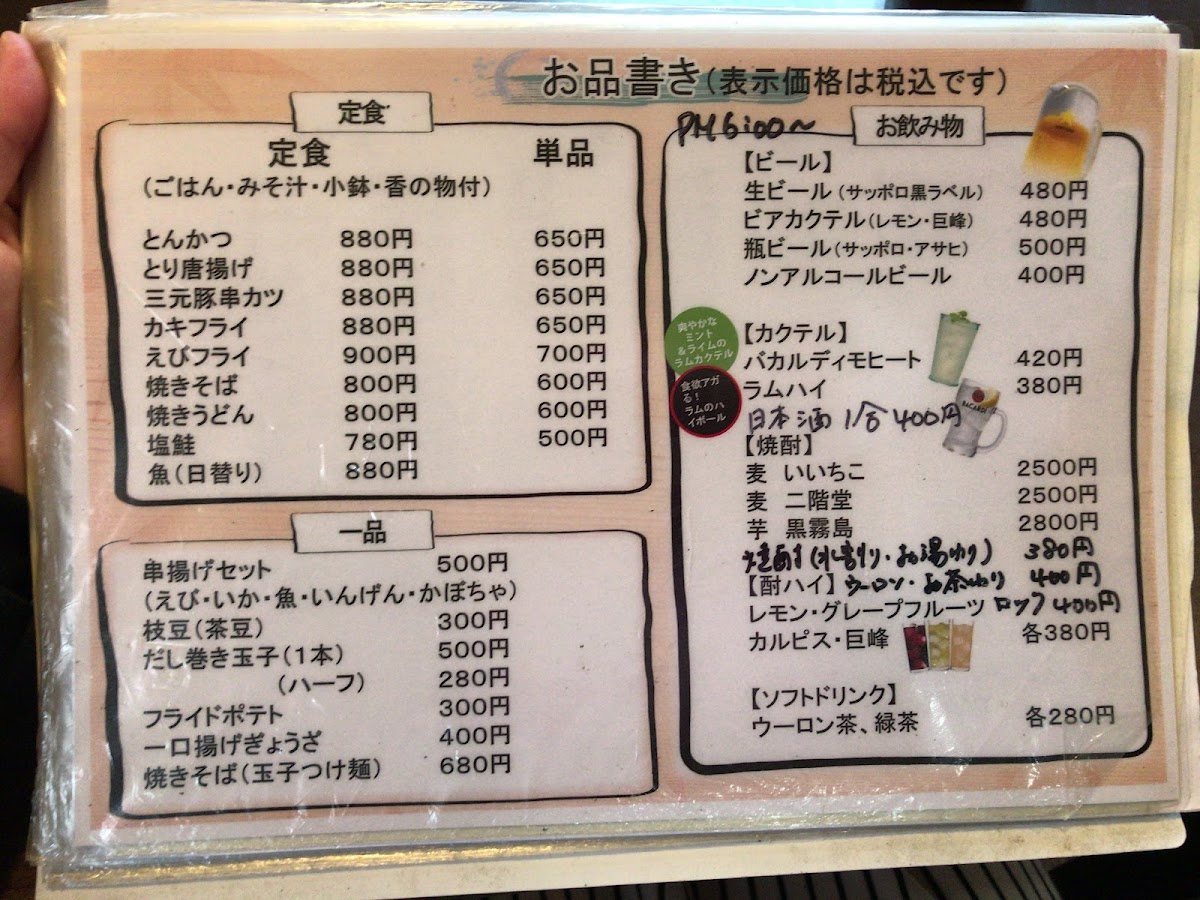 お品書き（表示価格は税込です）
定食
定食 単品
（ごはん・みそ汁・小鉢・香の物付）
とんかつ 880円 650円
とり唐揚げ 880円 650円
三元豚串カツ 880円 650円
カキフライ 880円 650円
えびフライ 900円 700円
焼きそば 800円 600円
焼きうどん 800円 600円
塩鮭 780円 500円
魚（日替り） 880円
一品
串揚げセット 500円
（えび・いか・魚・いんげん・かぼちゃ）
枝豆（茶豆） 300円
だし巻き玉子（１本） 500円
（ハーフ） 280円
フライドポテト 300円
一口揚げぎょうざ 400円
焼きそば（玉子つけ麺） 680円
PM6:00～
お飲み物
【ビール】
生ビール（サッポロ黒ラベル） 480円
ビアカクテル（レモン・巨峰） 480円
瓶ビール（サッポロ・アサヒ） 500円
ノンアルコールビール 400円
爽やかな
ミント
＆ライムの
ラムカクテル
【カクテル】
バカルディモヒート 420円
食欲アガ
る！
ラムのハ
イボール
ラムハイ 380円
BACARDI
日本酒 1合 400円
【焼酎】
麦 いいちこ 2500円
麦 二階堂 2500円
芋 黒霧島 2800円
焼酎（水割り・お湯わり） 380円
【酎ハイ】ウーロン・お茶わり 400円
レモン・グレープフルーツ ロック 400円
カルピス・巨峰 各380円
【ソフトドリンク】
ウーロン茶、緑茶 各280円